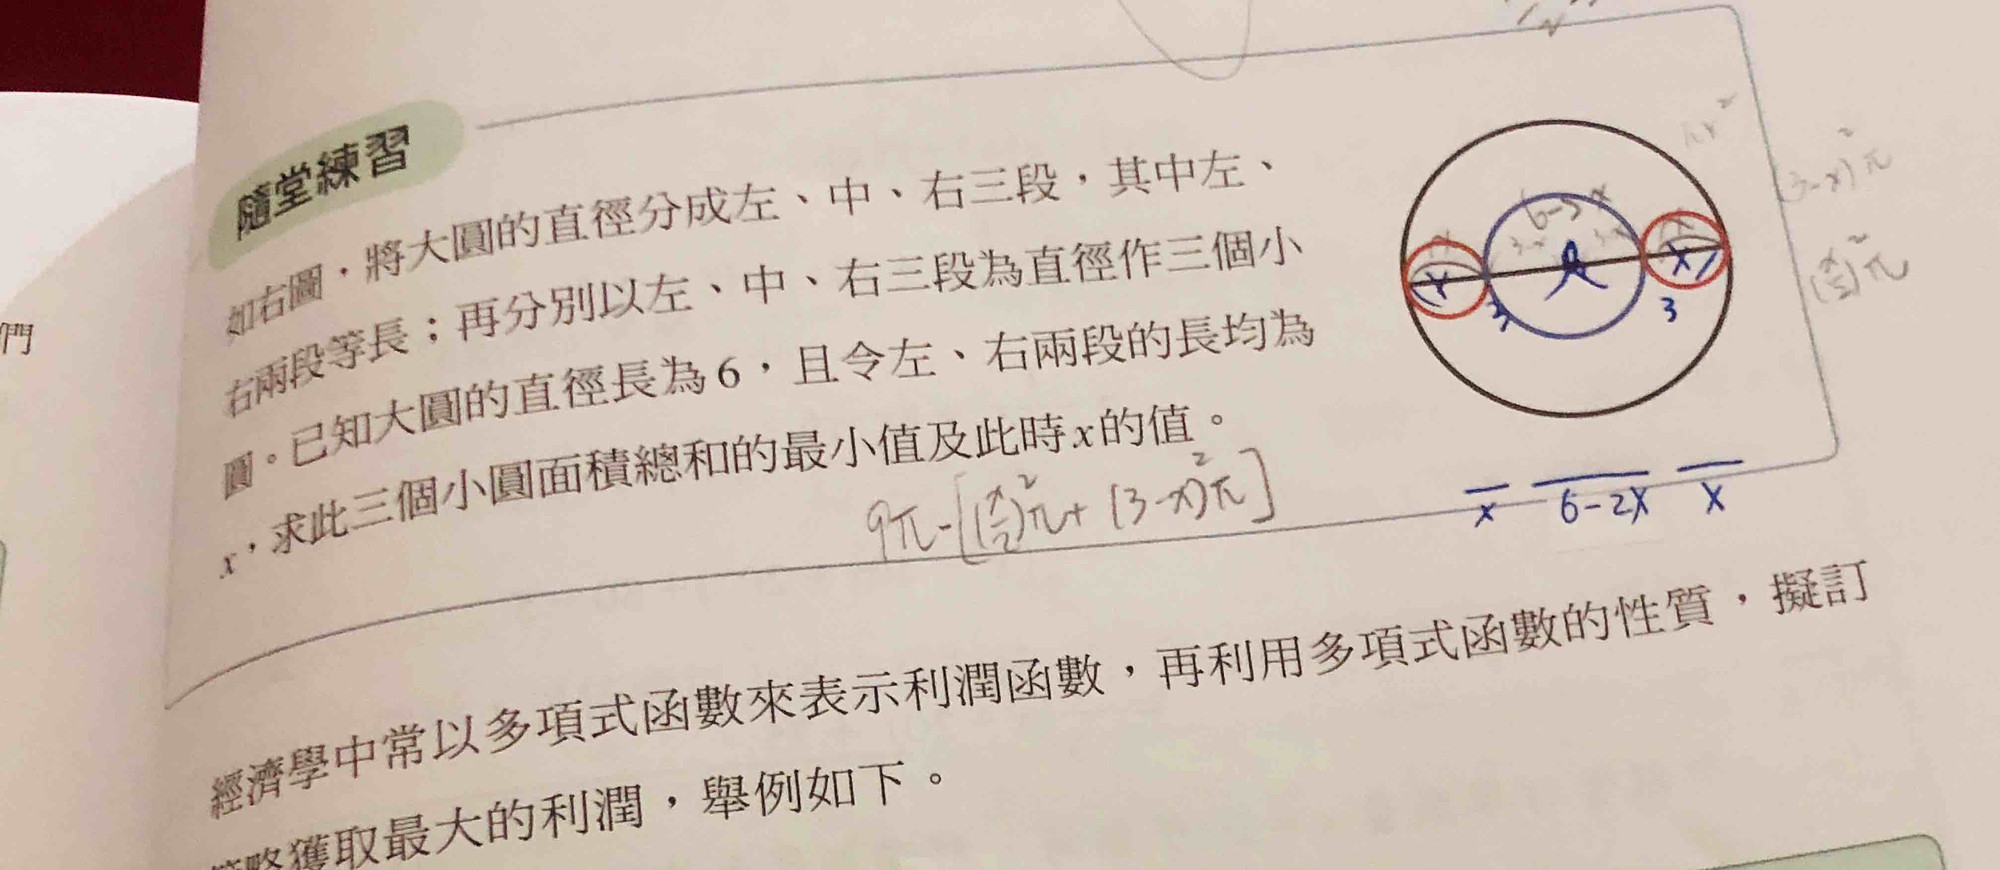 隨堂練習
如右圖，將大圓的直徑分成左、中、右三段，其中左、
右兩段等長；再分別以左、中、右三段為直徑作三個小
圓。已知大圓的直徑長為6，且令左、右兩段的長均為
x，求此三個小圓面積總和的最小值及此時x的值。
9π-[(x/2)²π+(3-x)²π]
πr²
(3-x)²π
(x/2)²π
x
x
3
3
x
6-2x
x
們
經濟學中常以多項式函數來表示利潤函數，再利用多項式函數的性質，擬訂
策略獲取最大的利潤，舉例如下。